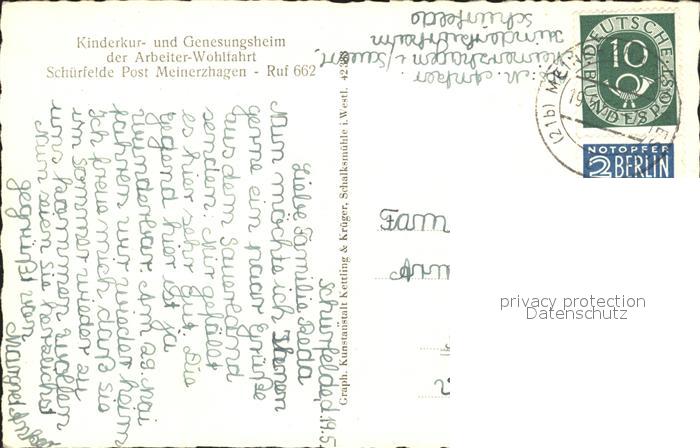 Kinderkur- und Genesungsheim
der Arbeiter-Wohlfahrt
Schürfelde Post Meinerzhagen - Ruf 662
Schürfelde, d. 19.5
Liebe Familie
Nun möchte ich Ihnen
gerne ein paar Grüße
aus dem Sauerland
senden. Mir gefällt
es hier sehr gut. Die
Gegend hier ist ja
wunderbar. Am 29. Mai
fahren wir wieder heim
Ich freue mich daß sie
im Sommer wieder zu
uns kommen wollen
Nun seien sie herzlichst
gegrüßt von
Margret
Meinerzhagen i/Sauerl.
Kinderkurheim
Schürfelde
Graph. Kunstanstalt Kettling & Krüger, Schalksmühle i. Westl.
DEUTSCHE
BUNDESPOST
10
(21b) MEIN
19
NOTOPFER
2 BERLIN
Fam
privacy protection
Datenschutz